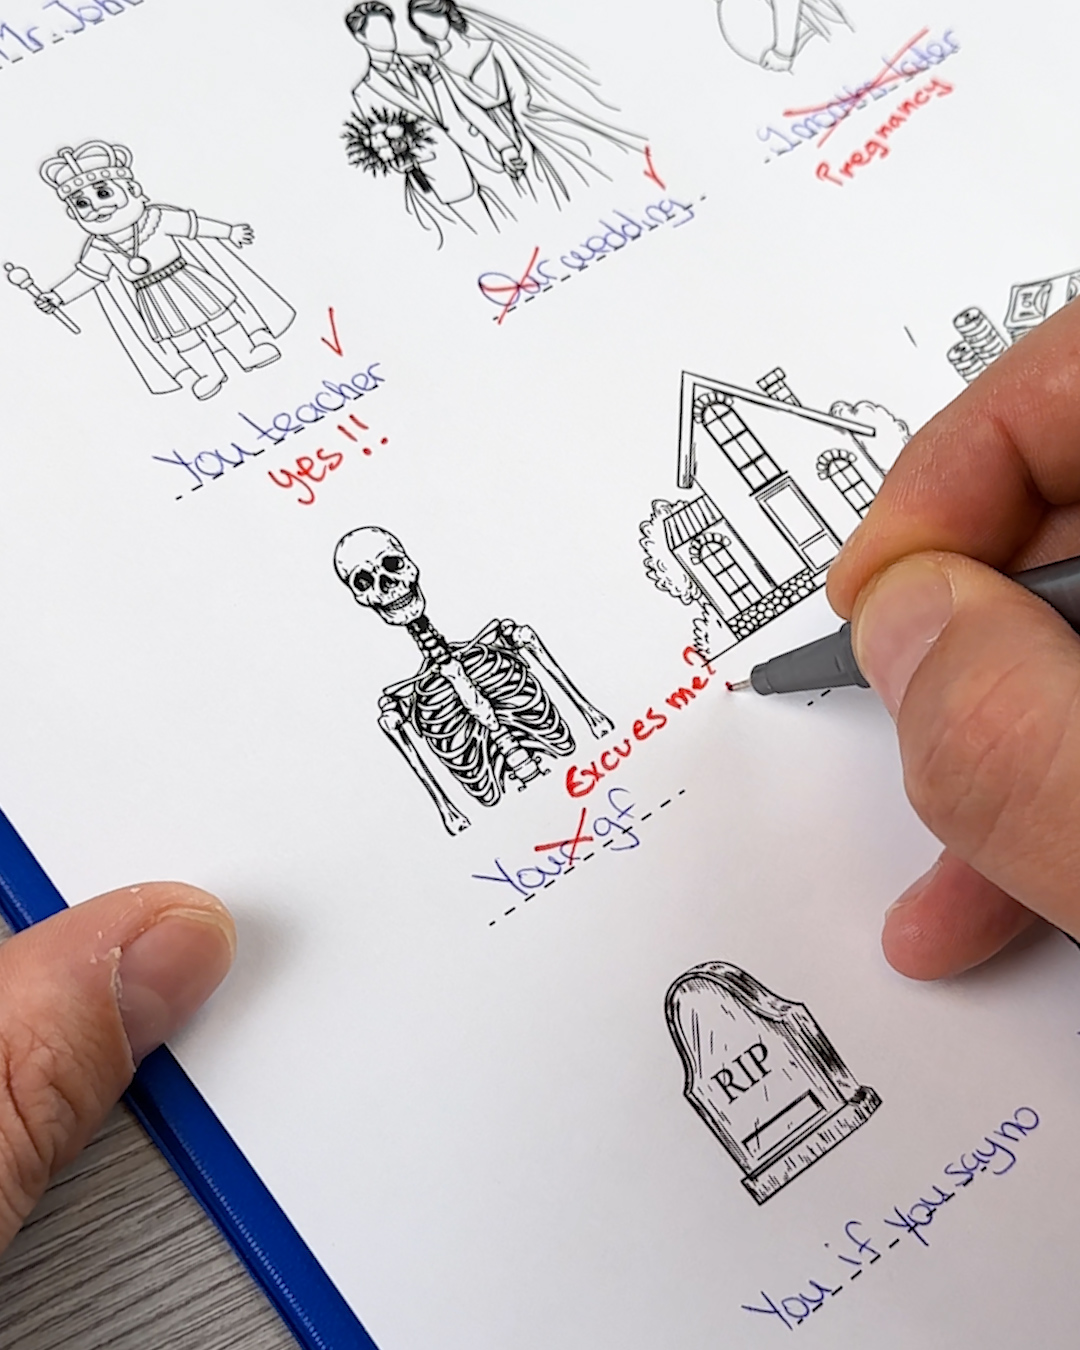 Mr. John
9 months later
Pregnancy
Our wedding
You teacher
yes!!
Excues me?
Your gf
RIP
You if you say no